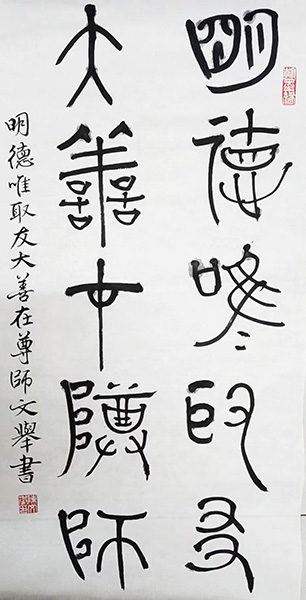 明德唯取友
大善在尊師
明德唯取友大善在尊師文舉書